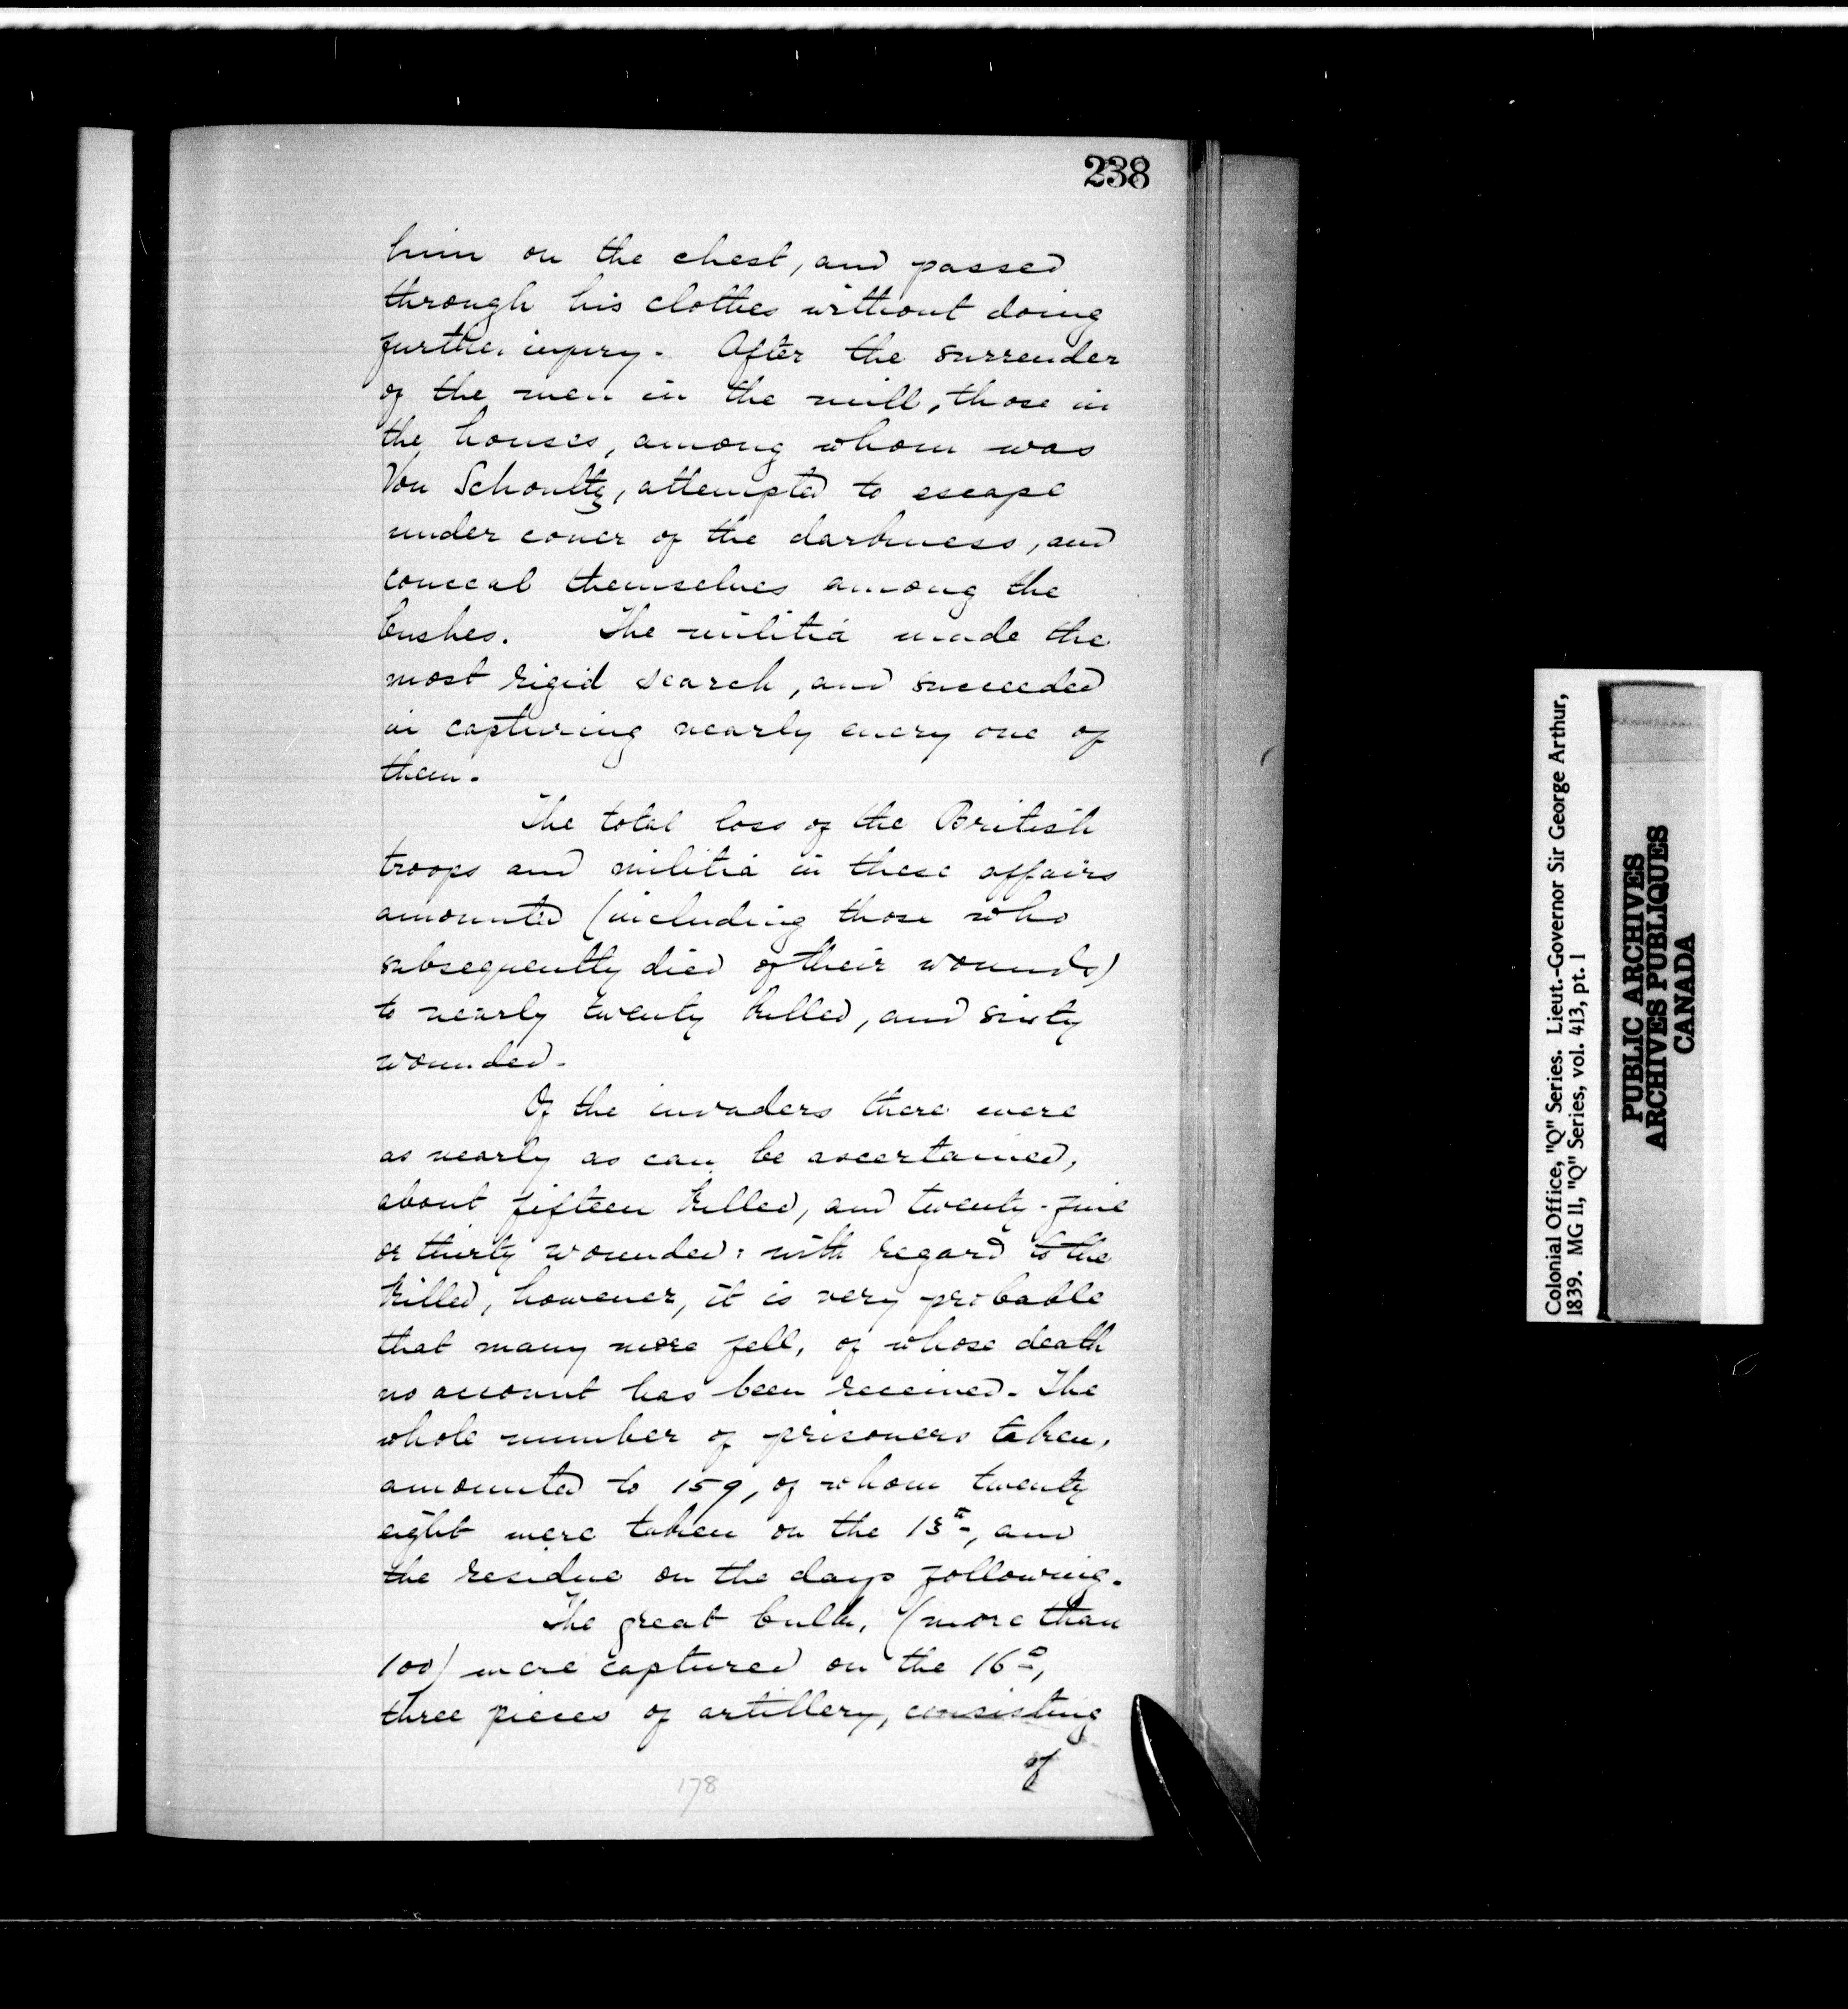 238
him on the chest, and passed
through his clothes without doing
further injury. After the surrender
of the men in the mill, those in
the houses, among whom was
Von Schoultz, attempted to escape
under cover of the darkness, and
conceal themselves among the
bushes. The militia made the
most rigid search, and succeeded
in capturing nearly every one of
them.
The total loss of the British
troops and militia in these affairs
amounted (including those who
subsequently died of their wounds)
to nearly twenty killed, and sixty
wounded.
Of the invaders there were
as nearly as can be ascertained,
about fifteen killed, and twenty-five
or thirty wounded: with regard to the
killed, however, it is very probable
that many more fell, of whose death
no account has been received. The
whole number of prisoners taken,
amounted to 159, of whom twenty
eight were taken on the 13th, and
the residue on the days following.
The great bulk, (more than
100) were captured on the 16th,
three pieces of artillery, consisting
of
178
Colonial Office, "Q" Series. Lieut.-Governor Sir George Arthur,
1839. MG 11, "Q" Series, vol. 413, pt. 1
PUBLIC ARCHIVES
ARCHIVES PUBLIQUES
CANADA